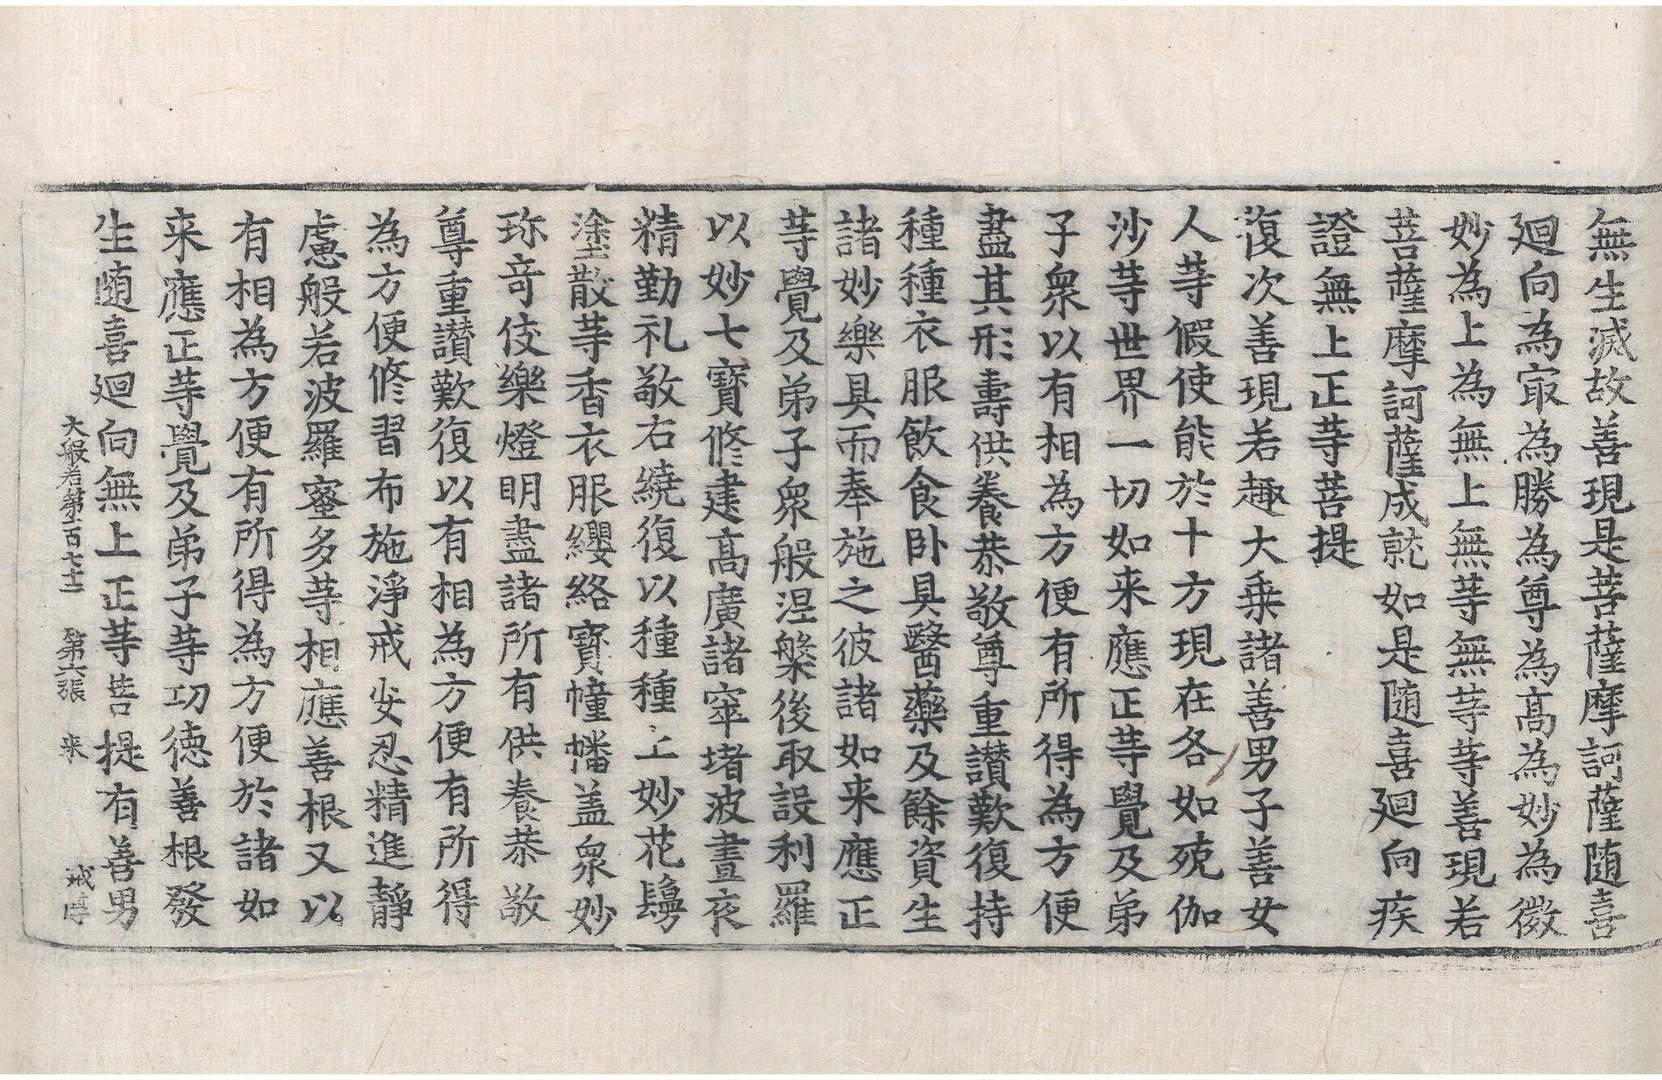 無生滅故善現是菩薩摩訶薩隨喜
廻向為㝡為勝為尊為髙為妙為微
妙為上為無上無等無等等善現若
菩薩摩訶薩成就如是隨喜廻向疾
證無上正等菩提
復次善現若趣大乗諸善男子善女
人等假使能於十方現在各如殑伽
沙等世界一切如来應正等覺及弟
子衆以有相為方便有所得為方便
盡其形壽供養恭敬尊重讃歎復持
種種衣服飲食卧具醫藥及餘資生
諸妙樂具而奉施之彼諸如来應正
等覺及弟子衆般涅槃後取設利羅
以妙七寳修建髙廣諸窣堵波晝夜
精勤礼敬右繞復以種種上妙花鬘
塗散等香衣服纓絡寳幢幡盖衆妙
珎竒伎樂燈明盡諸所有供養恭敬
尊重讃歎復以有相為方便有所得
為方便修習布施淨戒安忍精進靜
慮般若波羅蜜多等相應善根又以
有相為方便有所得為方便於諸如
来應正等覺及弟子等功徳善根發
生隨喜廻向無上正等菩提有善男
大般若第一百七十二 第六張 来